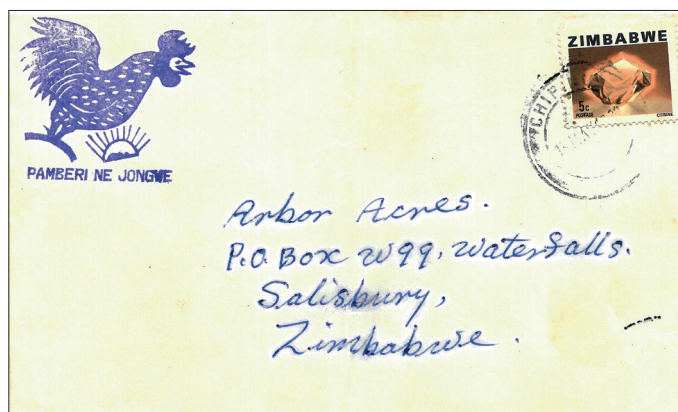 PAMBERI NE JONGWE
ZIMBABWE
5c
POSTAGE
CITRINE
Arbor Acres.
P.O. Box W99, Waterfalls.
Salisbury,
Zimbabwe.